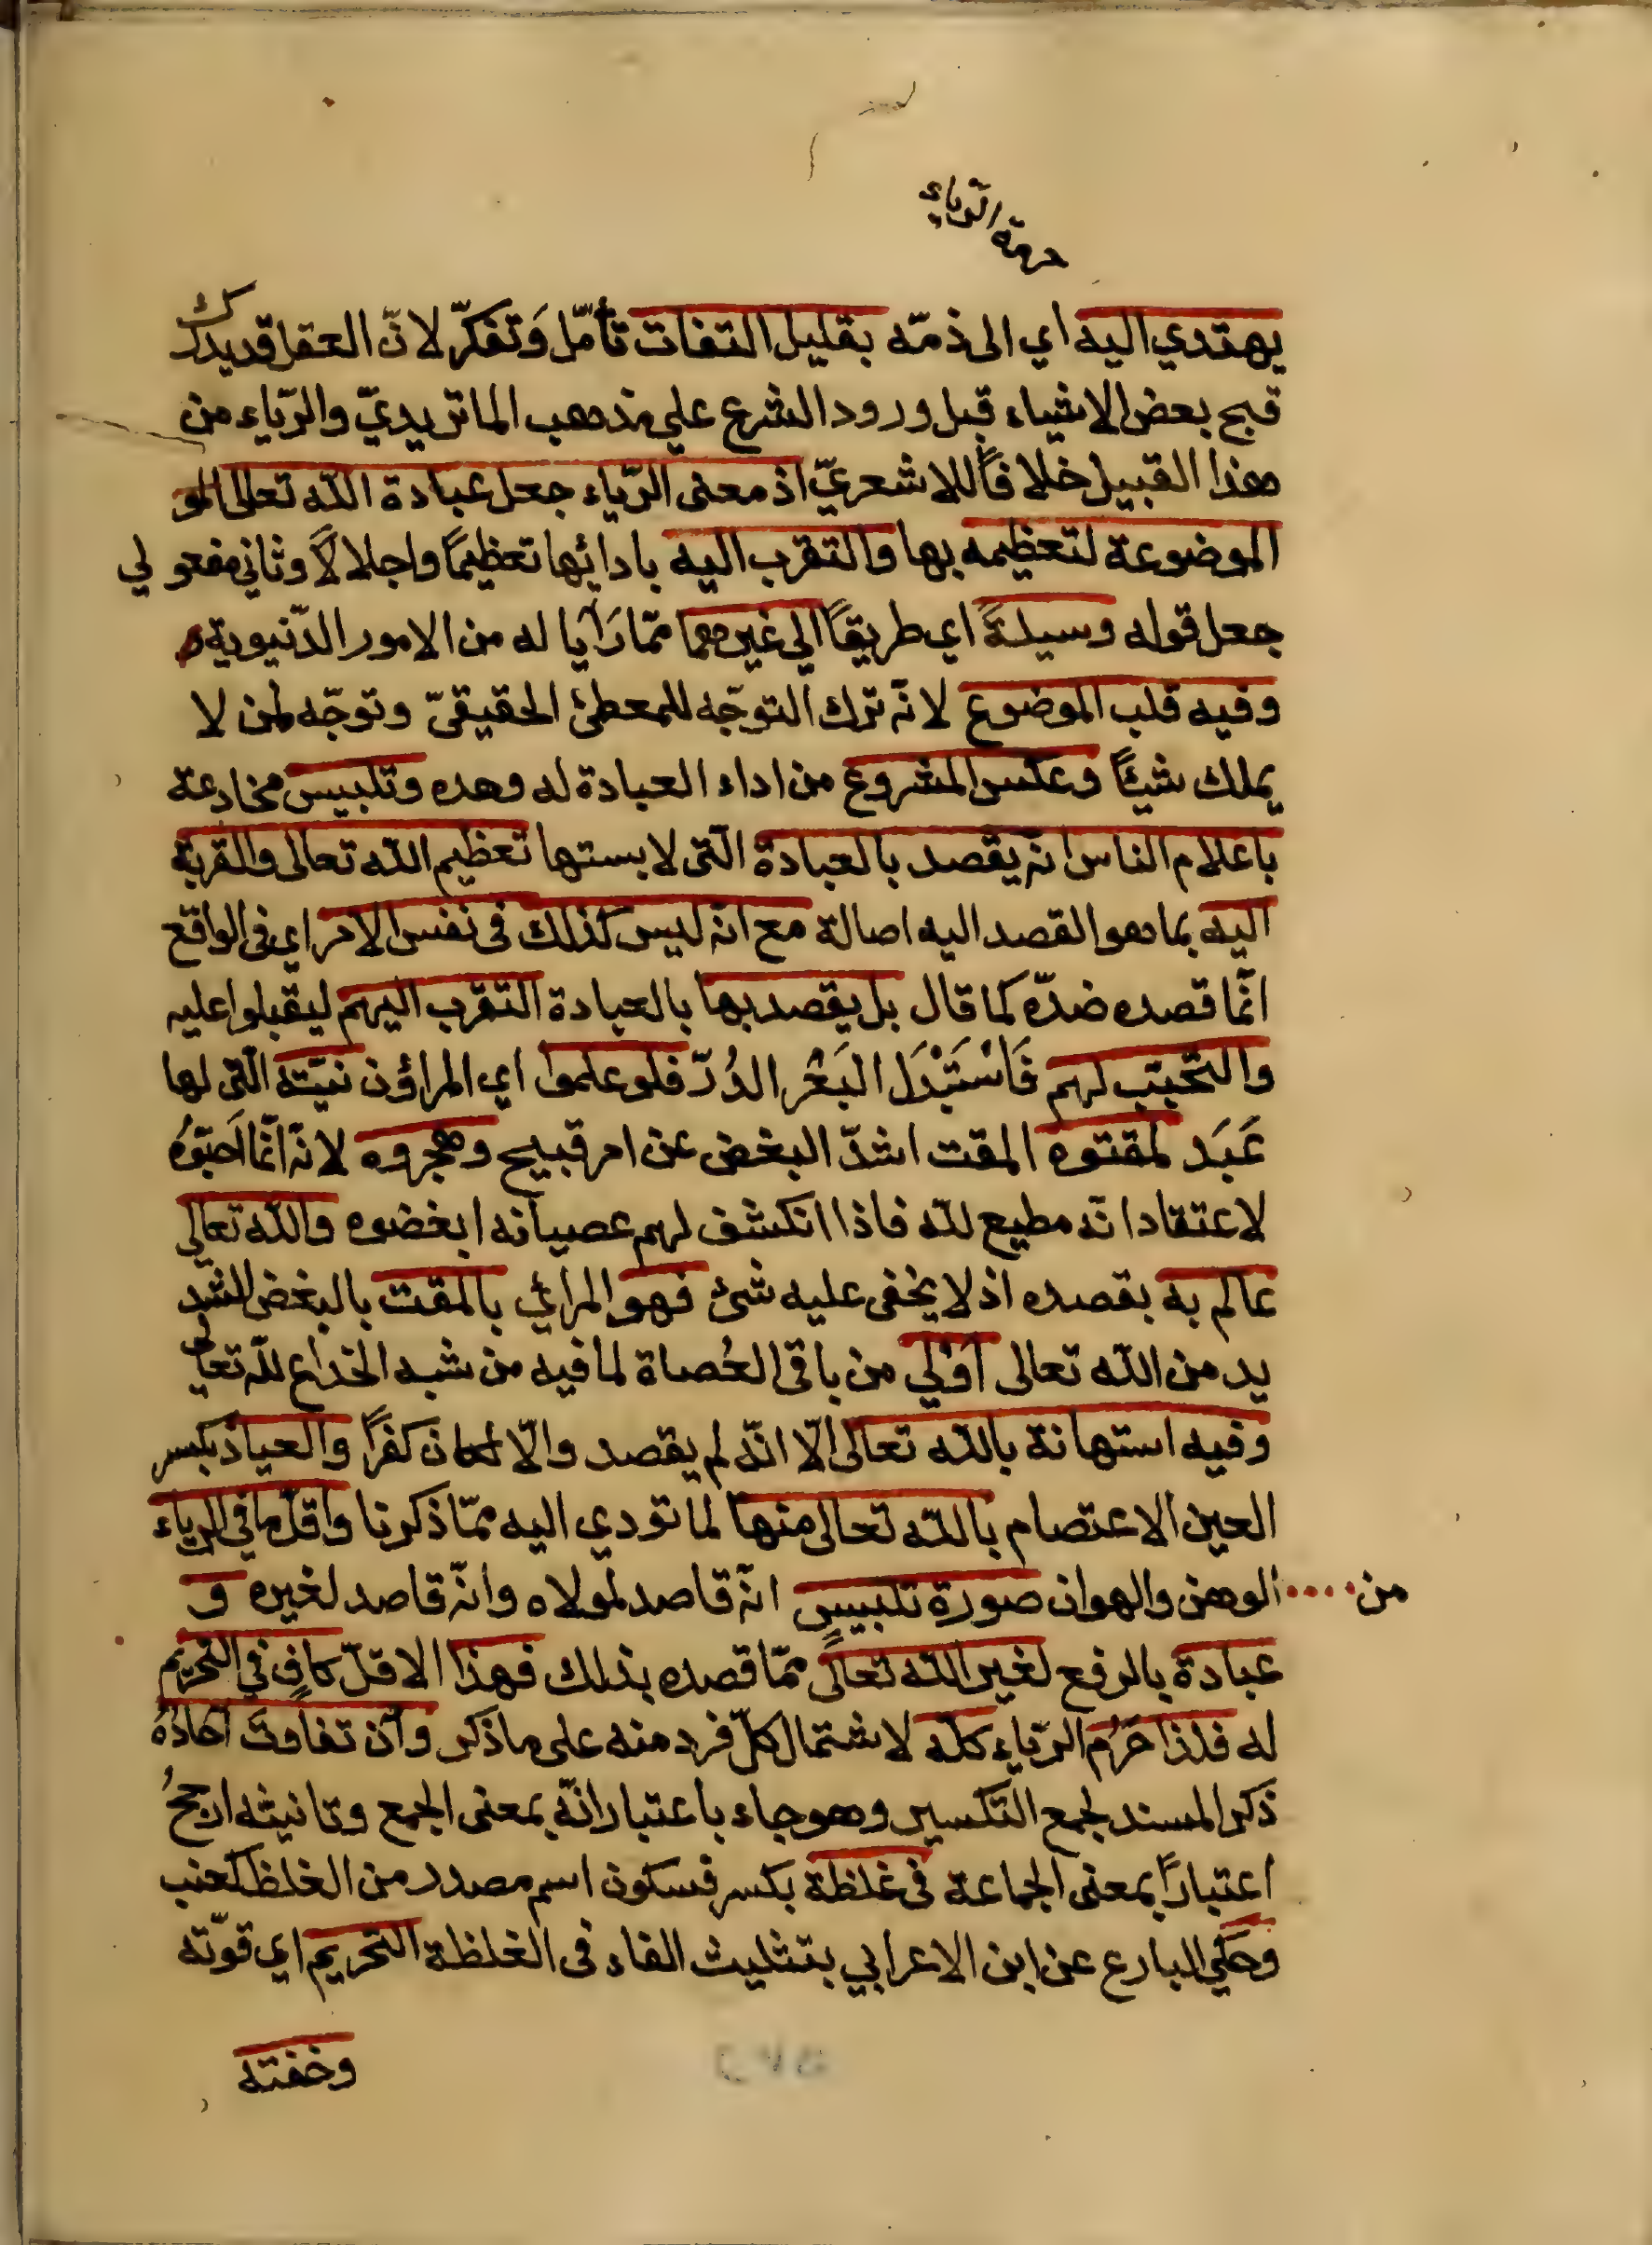 حرمة الرياء
يهتدي اليه اي الى ذمّه بقليل التفات تأمّل وَتفكّر لانّ العقل قد يدرك
قبح بعض الاشياء قبل ورود الشرع علي مذهب الماتريديّ والرّياء من
هذا القبيل خلافاً للاشعريّ اذ معنى الرّياء جعل عبادة الله تعالى المو
الموضوعة لتعظيمه بها والتقرب اليه بادائها تعظيمًا واجلالاً وثاني مفعولي
جعل قوله وسيلةً اي طريقاً الي غيرهما ممّا رَايا له من الامور الدّنيوية
وفيه قلب الموضوع لانّه ترك التوجّه للمعطئ الحقيقيّ وتوجّه لمن لا
يملك شيئًا وعكس المشروع من اداء العبادة له وحده وتلبيس مخادعة
باعلام الناس انّه يقصد بالعبادة الّتى لابستها تعظيم الله تعالى والقربة
اليه بما هو القصد اليه اصالة مع انّه ليس كذلك فى نفس الامر اي فى الواقع
انّما قصده ضدّه كما قال بل يقصد بها بالعبادة التقرب اليهم ليقبلوا عليه
والتحبّب لهم فَاسْتَبْدَل البَعْر الدُرّ فلو علموا اي المراؤن نيّته الّتى لها
عَبَد لمقتوه المقت اشدّ البغض عن امر قبيح وهجروه لانّه انّما اَحبّوُه
لاعتقاد انّه مطيع لله فاذا انكشف لهم عصيانه ابغضوه والله تعالي
عالم به بقصده اذ لا يخفى عليه شئ فهو المرائي بالمقت بالبغض الشد
يد من الله تعالى اَوْلي من باقى العُصاة لما فيه من شبه الخداع لله تعالى
وفيه استهانة بالله تعالى الّا انّه لم يقصد والّا لكان كفرًا والعياذ بكسر
العين الاعتصام بالله تعالى منها لما تودي اليه ممّا ذكرنا واقلّ ما في الرياء
من الوهن والهوان صورة تلبيسٍ انّه قاصد لمولاه وانّه قاصد لغيره و
عبادة بالرفع لغير الله تعالى ممّا قصده بذلك فهذا الاقلّ كافٍ في التحريم
له فلذا حَرُم الرّياء كلّه لاشتمال كلّ فرد منه على ما ذكر وان تفاوتَ آحادُهُ
ذكر المسند لجمع التكسير وهو جاء باعتبار انّه بمعنى الجمع وتانيثه ارجحُ
اعتبارًا بمعنى الجماعة فى غلظة بكسر فسكون اسم مصدر من الغلظ كعنب
وحكي البارع عن ابن الاعرابي بتثليث الفاء فى الغلظة التحريم اي قوّته
وخفته